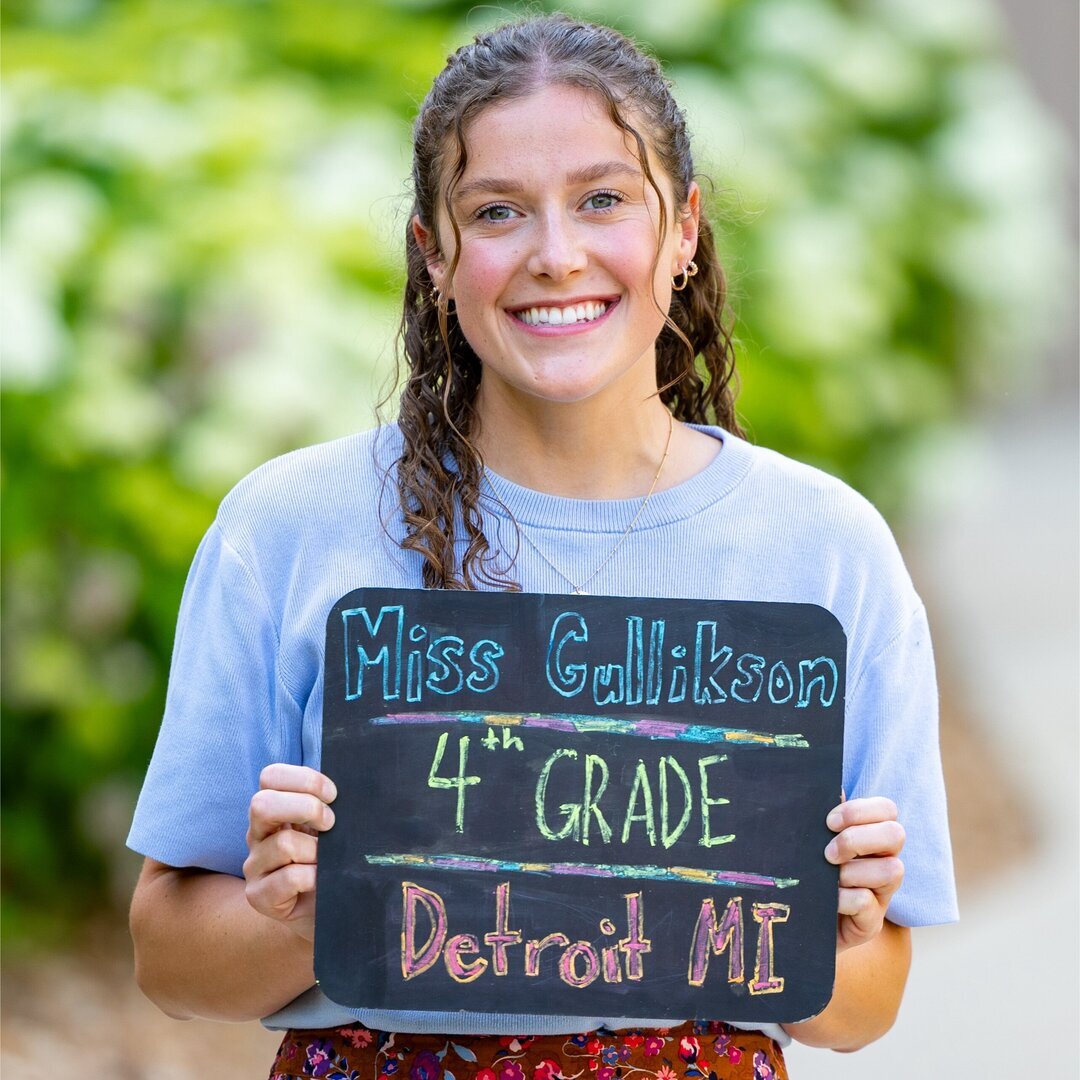 Miss Gullikson
4th GRADE
Detroit MI